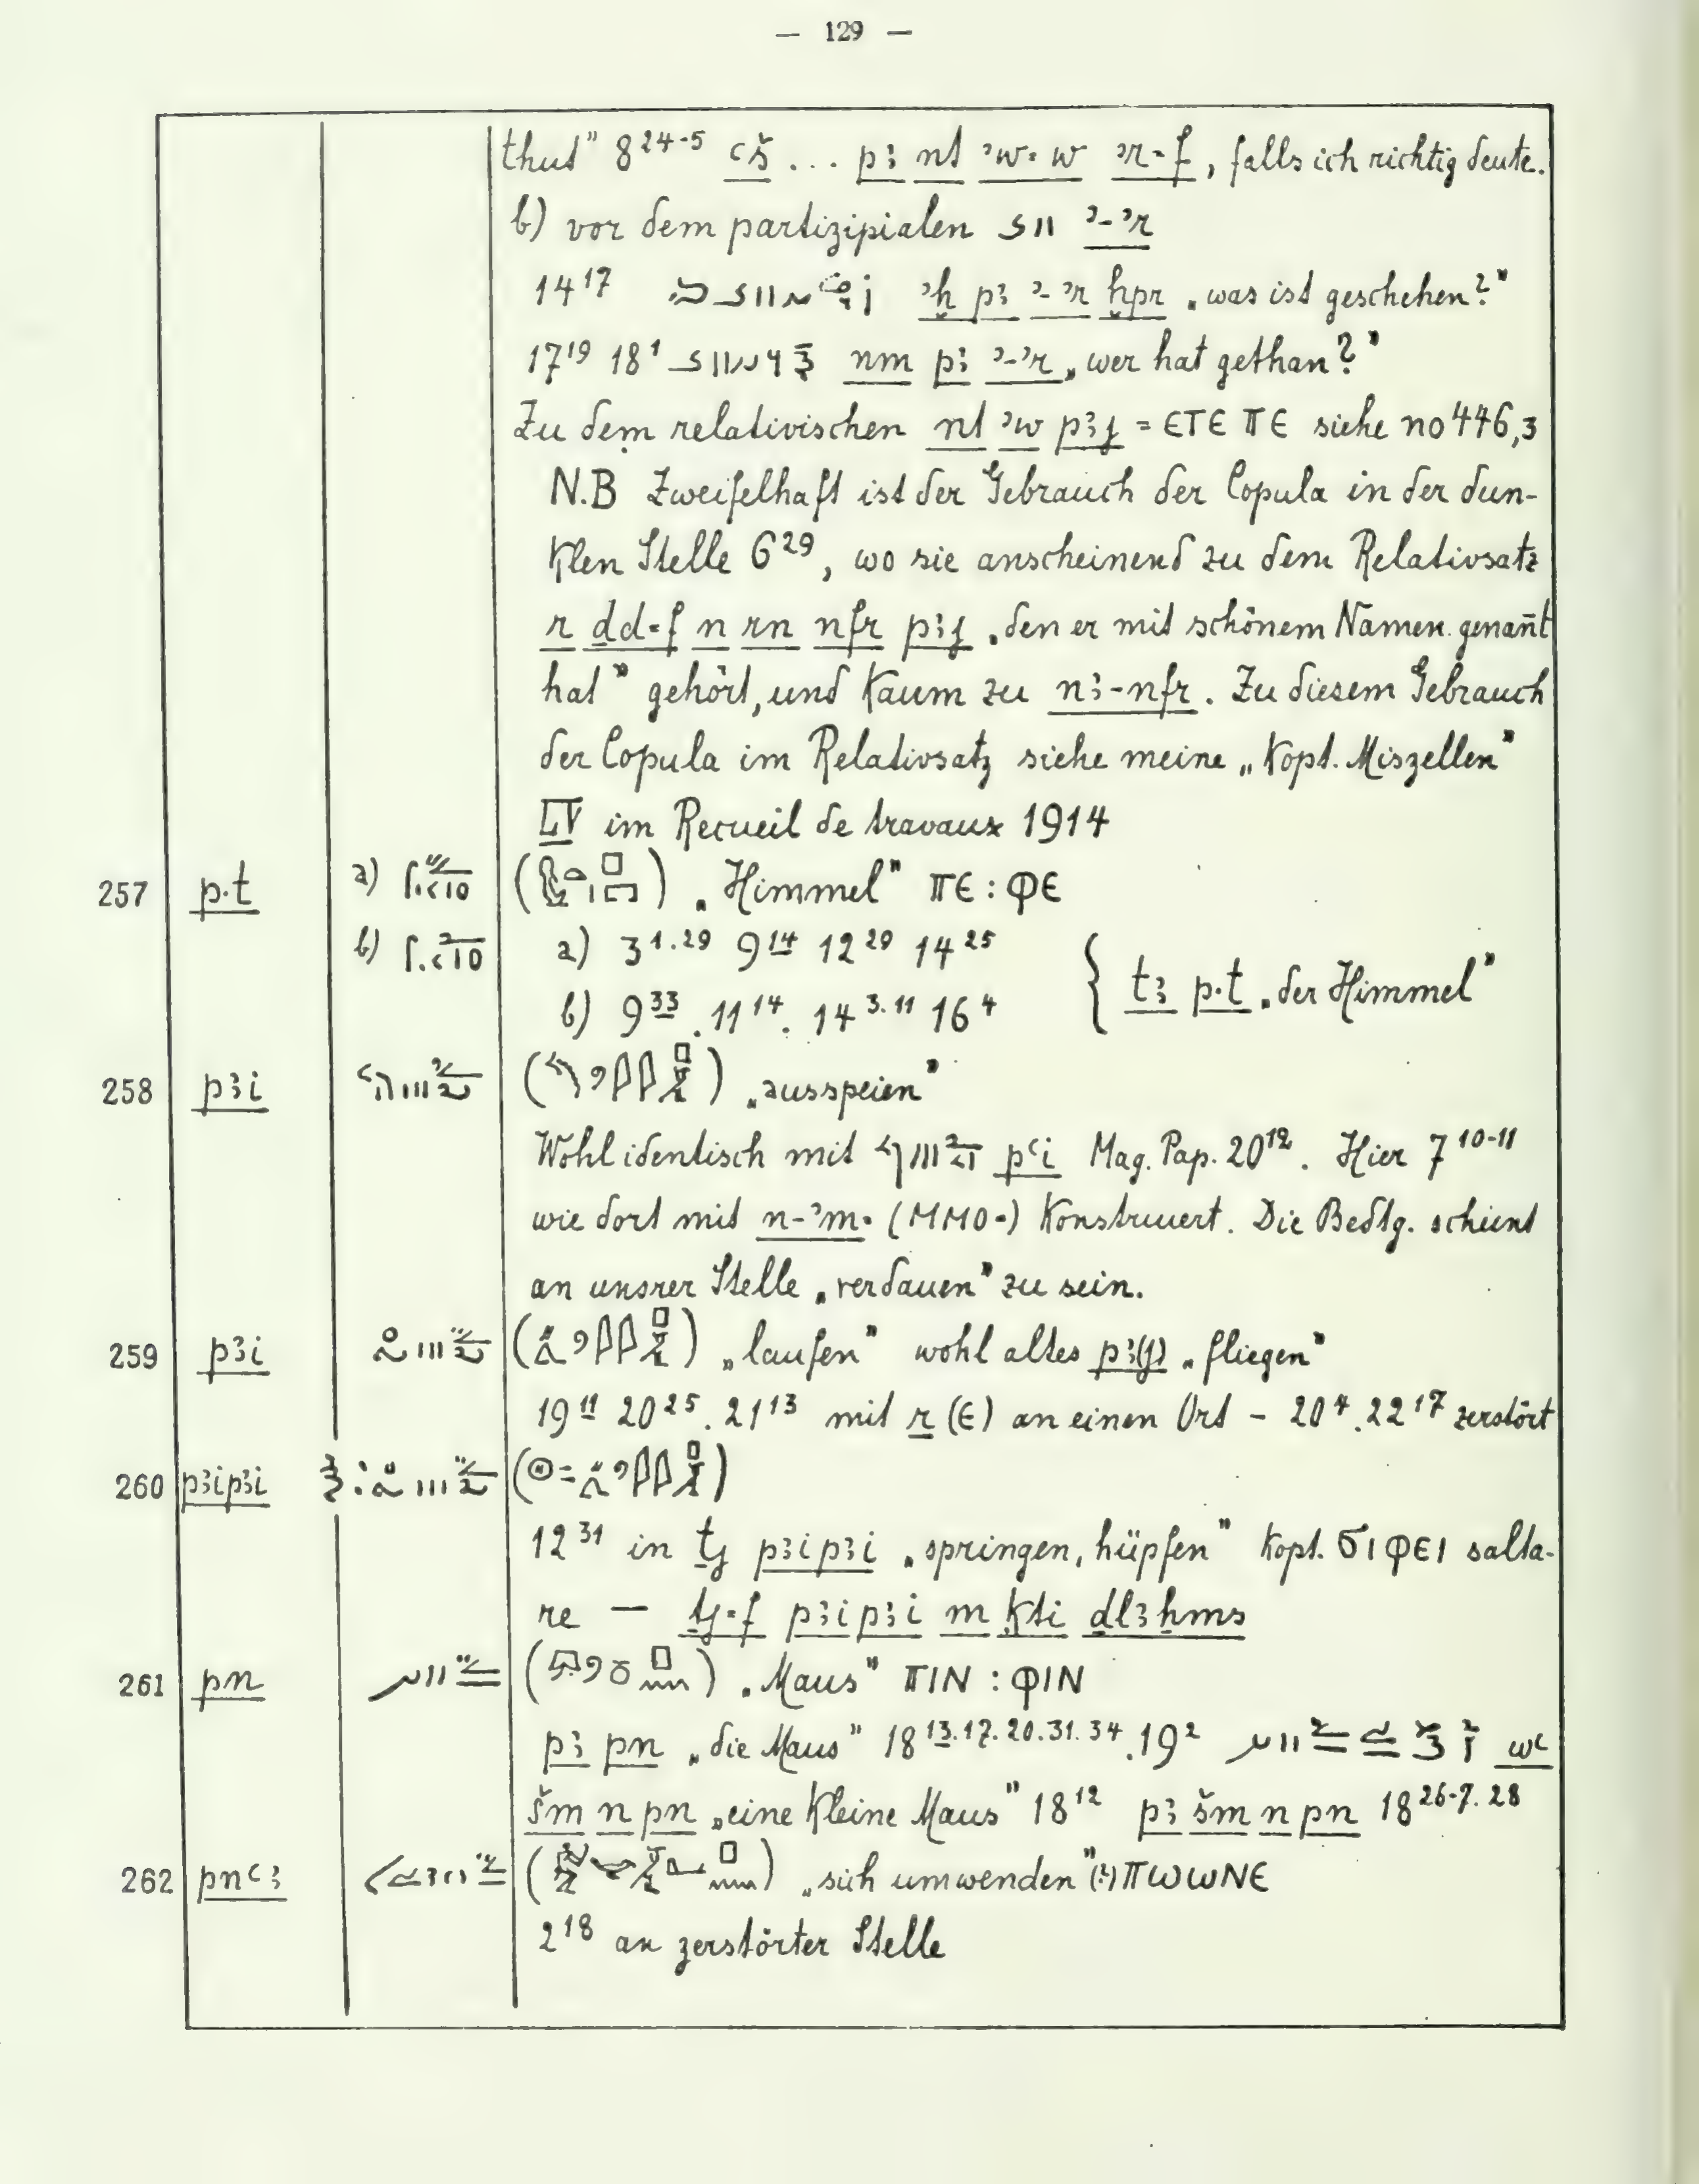 — 129 —
thut" 8²⁴⁻⁵ ꜥš ... pꜣ nt ꜣw=w ꜣr=f, falls ich richtig deute.
b) vor dem partizipialen ꜣ-ꜣr
14¹⁷ ꜣḫ pꜣ ꜣ-ꜣr ḫpr „was ist geschehen?"
17¹⁹ 18¹ nm pꜣ ꜣ-ꜣr „wer hat gethan?"
Zu dem relativischen nt ꜣw pꜣj = ⲈⲦⲈ ⲠⲈ siehe no 446,3
N.B Zweifelhaft ist der Gebrauch der Copula in der dun-
klen Stelle 6²⁹, wo sie anscheinend zu dem Relativsatz
r ḏd=f n rn nfr pꜣj „den er mit schönem Namen genan̄t
hat" gehört, und kaum zu nꜣ-nfr. Zu diesem Gebrauch
der Copula im Relativsatz siehe meine „Kopt. Miszellen"
LV im Recueil de travaux 1914
257 p.t a) ( ) „Himmel" ⲠⲈ : ⲪⲈ
b) a) 3¹·²⁹ 9¹⁴ 12²⁹ 14²⁵
b) 9³³. 11¹⁴. 14³·¹¹ 16⁴ { tꜣ p.t „der Himmel"
258 pꜣi ( ) „ausspeien"
Wohl identisch mit pꜥi Mag. Pap. 20¹². Hier 7¹⁰⁻¹¹
wie dort mit n-ꜣm= (ⲘⲘⲞ=) konstruiert. Die Bedtg. scheint
an unsrer Stelle „verdauen" zu sein.
259 pꜣi ( ) „laufen" wohl altes pꜣ(j) „fliegen"
19¹¹ 20²⁵. 21¹³ mit r (Ⲉ) an einen Ort – 20⁴. 22¹⁷ zerstört
260 pꜣipꜣi ( )
12³¹ in ṯj pꜣipꜣi „springen, hüpfen" kopt. ϬⲒⲪⲈⲒ salta-
re — ṯj=f pꜣipꜣi m ḳti ḏlꜣhms
261 pn ( ) „Maus" ⲠⲒⲚ : ⲪⲒⲚ
pꜣ pn „die Maus" 18¹³·¹⁷·²⁰·³¹·³⁴. 19² wꜥ
šm n pn „eine kleine Maus" 18¹² pꜣ šm n pn 18²⁶⁻⁷·²⁸
262 pnꜥꜣ ( ) „sich umwenden" (?) ⲠⲰⲰⲚⲈ
2¹⁸ an zerstörter Stelle